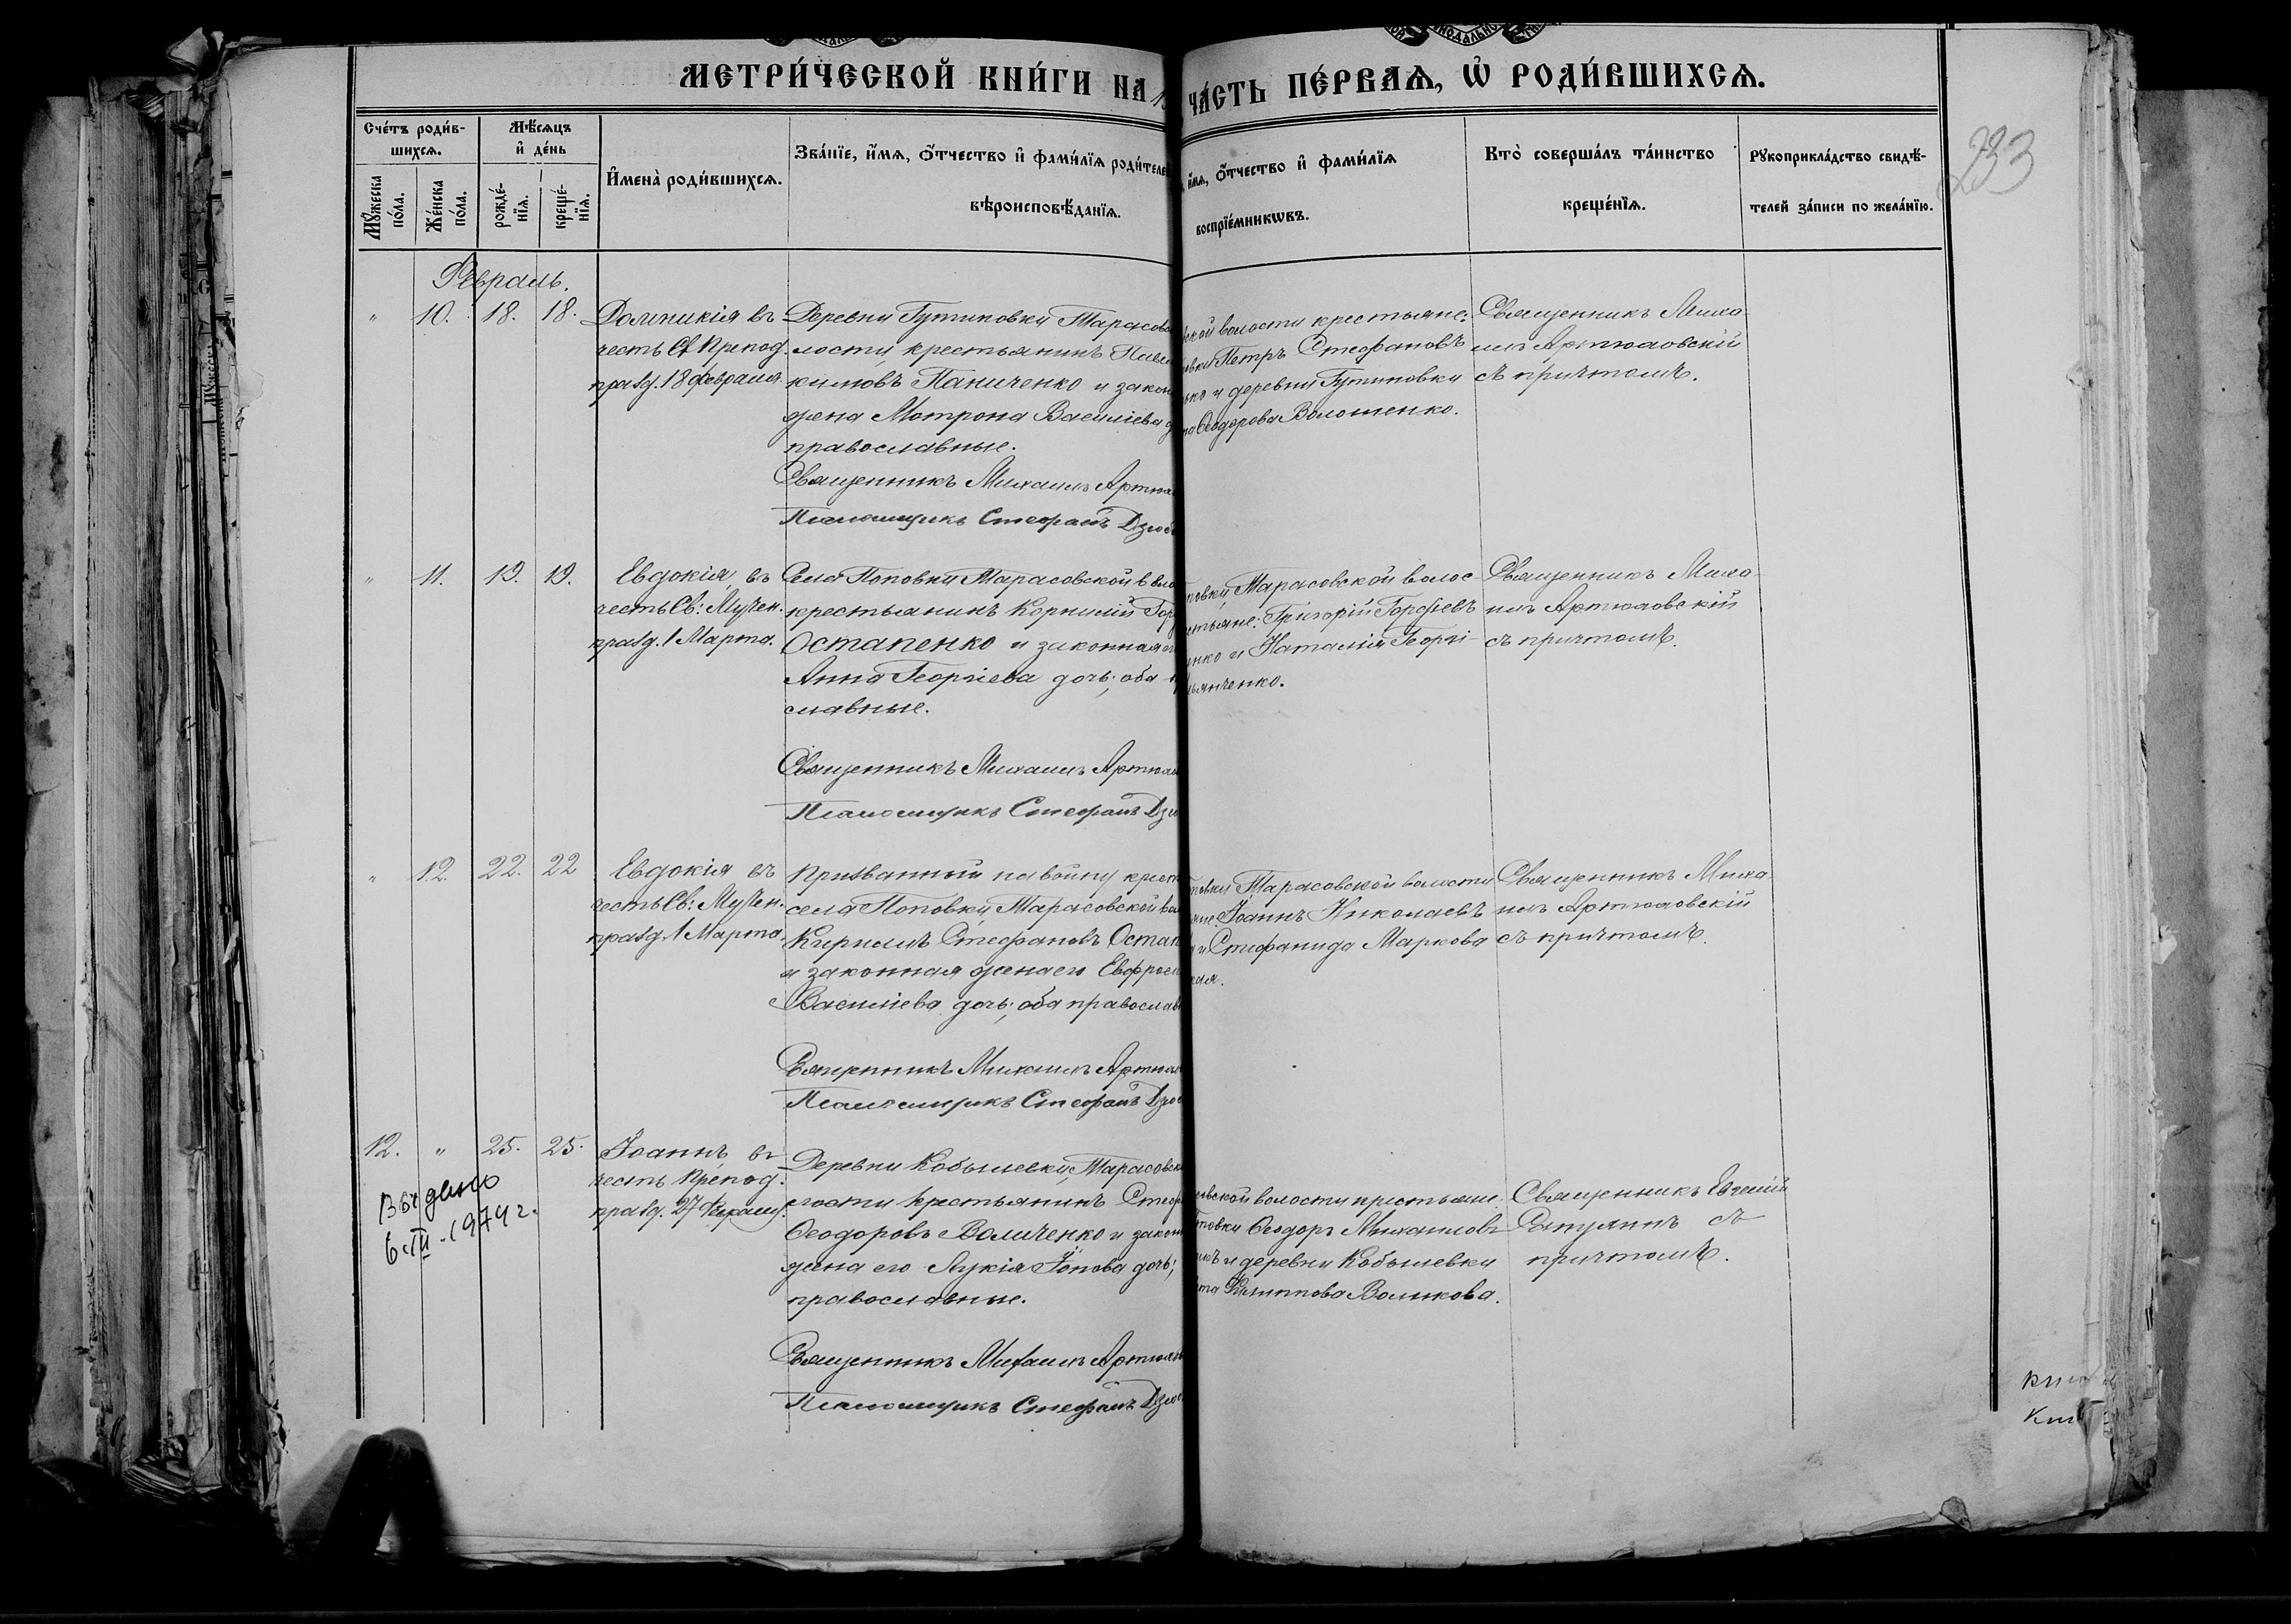 МЕТРИ́ЧЕСКОЙ КНИ́ГИ НА
ЧА́СТЬ ПЕ́РВАѦ, Ѡ҆ РОДИ́ВШИХСѦ.
Сче́тъ роди́в-
шихсѧ.
Мꙋ́жеска
по́ла.
Же́нска
по́ла.
Мѣ́сѧцъ
и҆ де́нь
рожде́-
нїѧ.
креще́-
нїѧ.
И҆мена̀ роди́вшихсѧ.
Зва́нїе, и҆́мѧ, ѻ҆́тчество и҆ фами́лїѧ роди́теле
вѣроисповѣ́данїѧ.
и҆́мѧ, ѻ҆́тчество и҆ фами́лїѧ
воспрїе́мникѡвъ.
Кто̀ соверша́лъ та́инство
креще́нїѧ.
Рꙋкоприкла́дство свидѣ́-
телей за́писи по жела́нїю.
233
Февраль.
" 10. 18. 18.
Домникія въ
честь Св Препод.
празд. 18 февраля.
Деревни Гутиновки Тарасов
лости, крестьянинъ
кимовъ Паниченко и закон
жена Мотрона Василіева
православные.
Священникъ Михаилъ Артюх
Псаломщикъ Стефанъ Дзюб
ской волости крестьяне:
Петръ Стефановъ
и деревни Гутиновки
Ѳеодорова Волошенко.
Священникъ Миха
илъ Артюховскій
съ причтомъ.
" 11. 19. 19.
Евдокія, въ
честь Св: Мучен.
празд. 1 Марта.
Села Поповки Тарасовской в вол
крестьянинъ Корнилій Гор
Остапенко и законная
Анна Георгіева дочь; оба
славные.
Священникъ Михаилъ Артюх
Псаломщикъ Стефанъ Дзю
повки, Тарасовской волос-
стьяне: Григорій Гордіевъ
енко и Наталія Георгі-
ьянченко.
Священникъ Миха
илъ Артюховскій
съ причтомъ.
" 12. 22. 22
Евдокія въ
честь Св: Мучен.
празд. 1 Марта.
Призванный на войну крест
села Поповки Тарасовской вол
Кириллъ Стефановъ Остап
и законная жена его Евфроси
Василіева дочь; оба православ
Священникъ Михаилъ Артюх
Псаломщикъ Стефанъ Дзюб
повки, Тарасовской волости
Іоаннъ Николаевъ
и Стефанида Маркова
кая.
Священникъ Миха
илъ Артюховскій
съ причтомъ.
12. " 25. 25.
Выдано
6.III-1974 г.
Іоаннъ, въ
честь Препод.
празд. 27 Феврал.
Деревни Кобылевки, Тарасовск
лости крестьянинъ Стеф
Ѳеодоровъ Воличенко и закон
жена его Лукія Іонова дочь;
православные.
Священникъ Михаилъ Артюх
Псаломщикъ Стефанъ Дзюб
вской волости крестьяне:
повки Ѳеодоръ Михаиловъ
и деревни Кобылевки
Филиппова Воликова.
Священникъ Евгеній
съ
причтомъ.